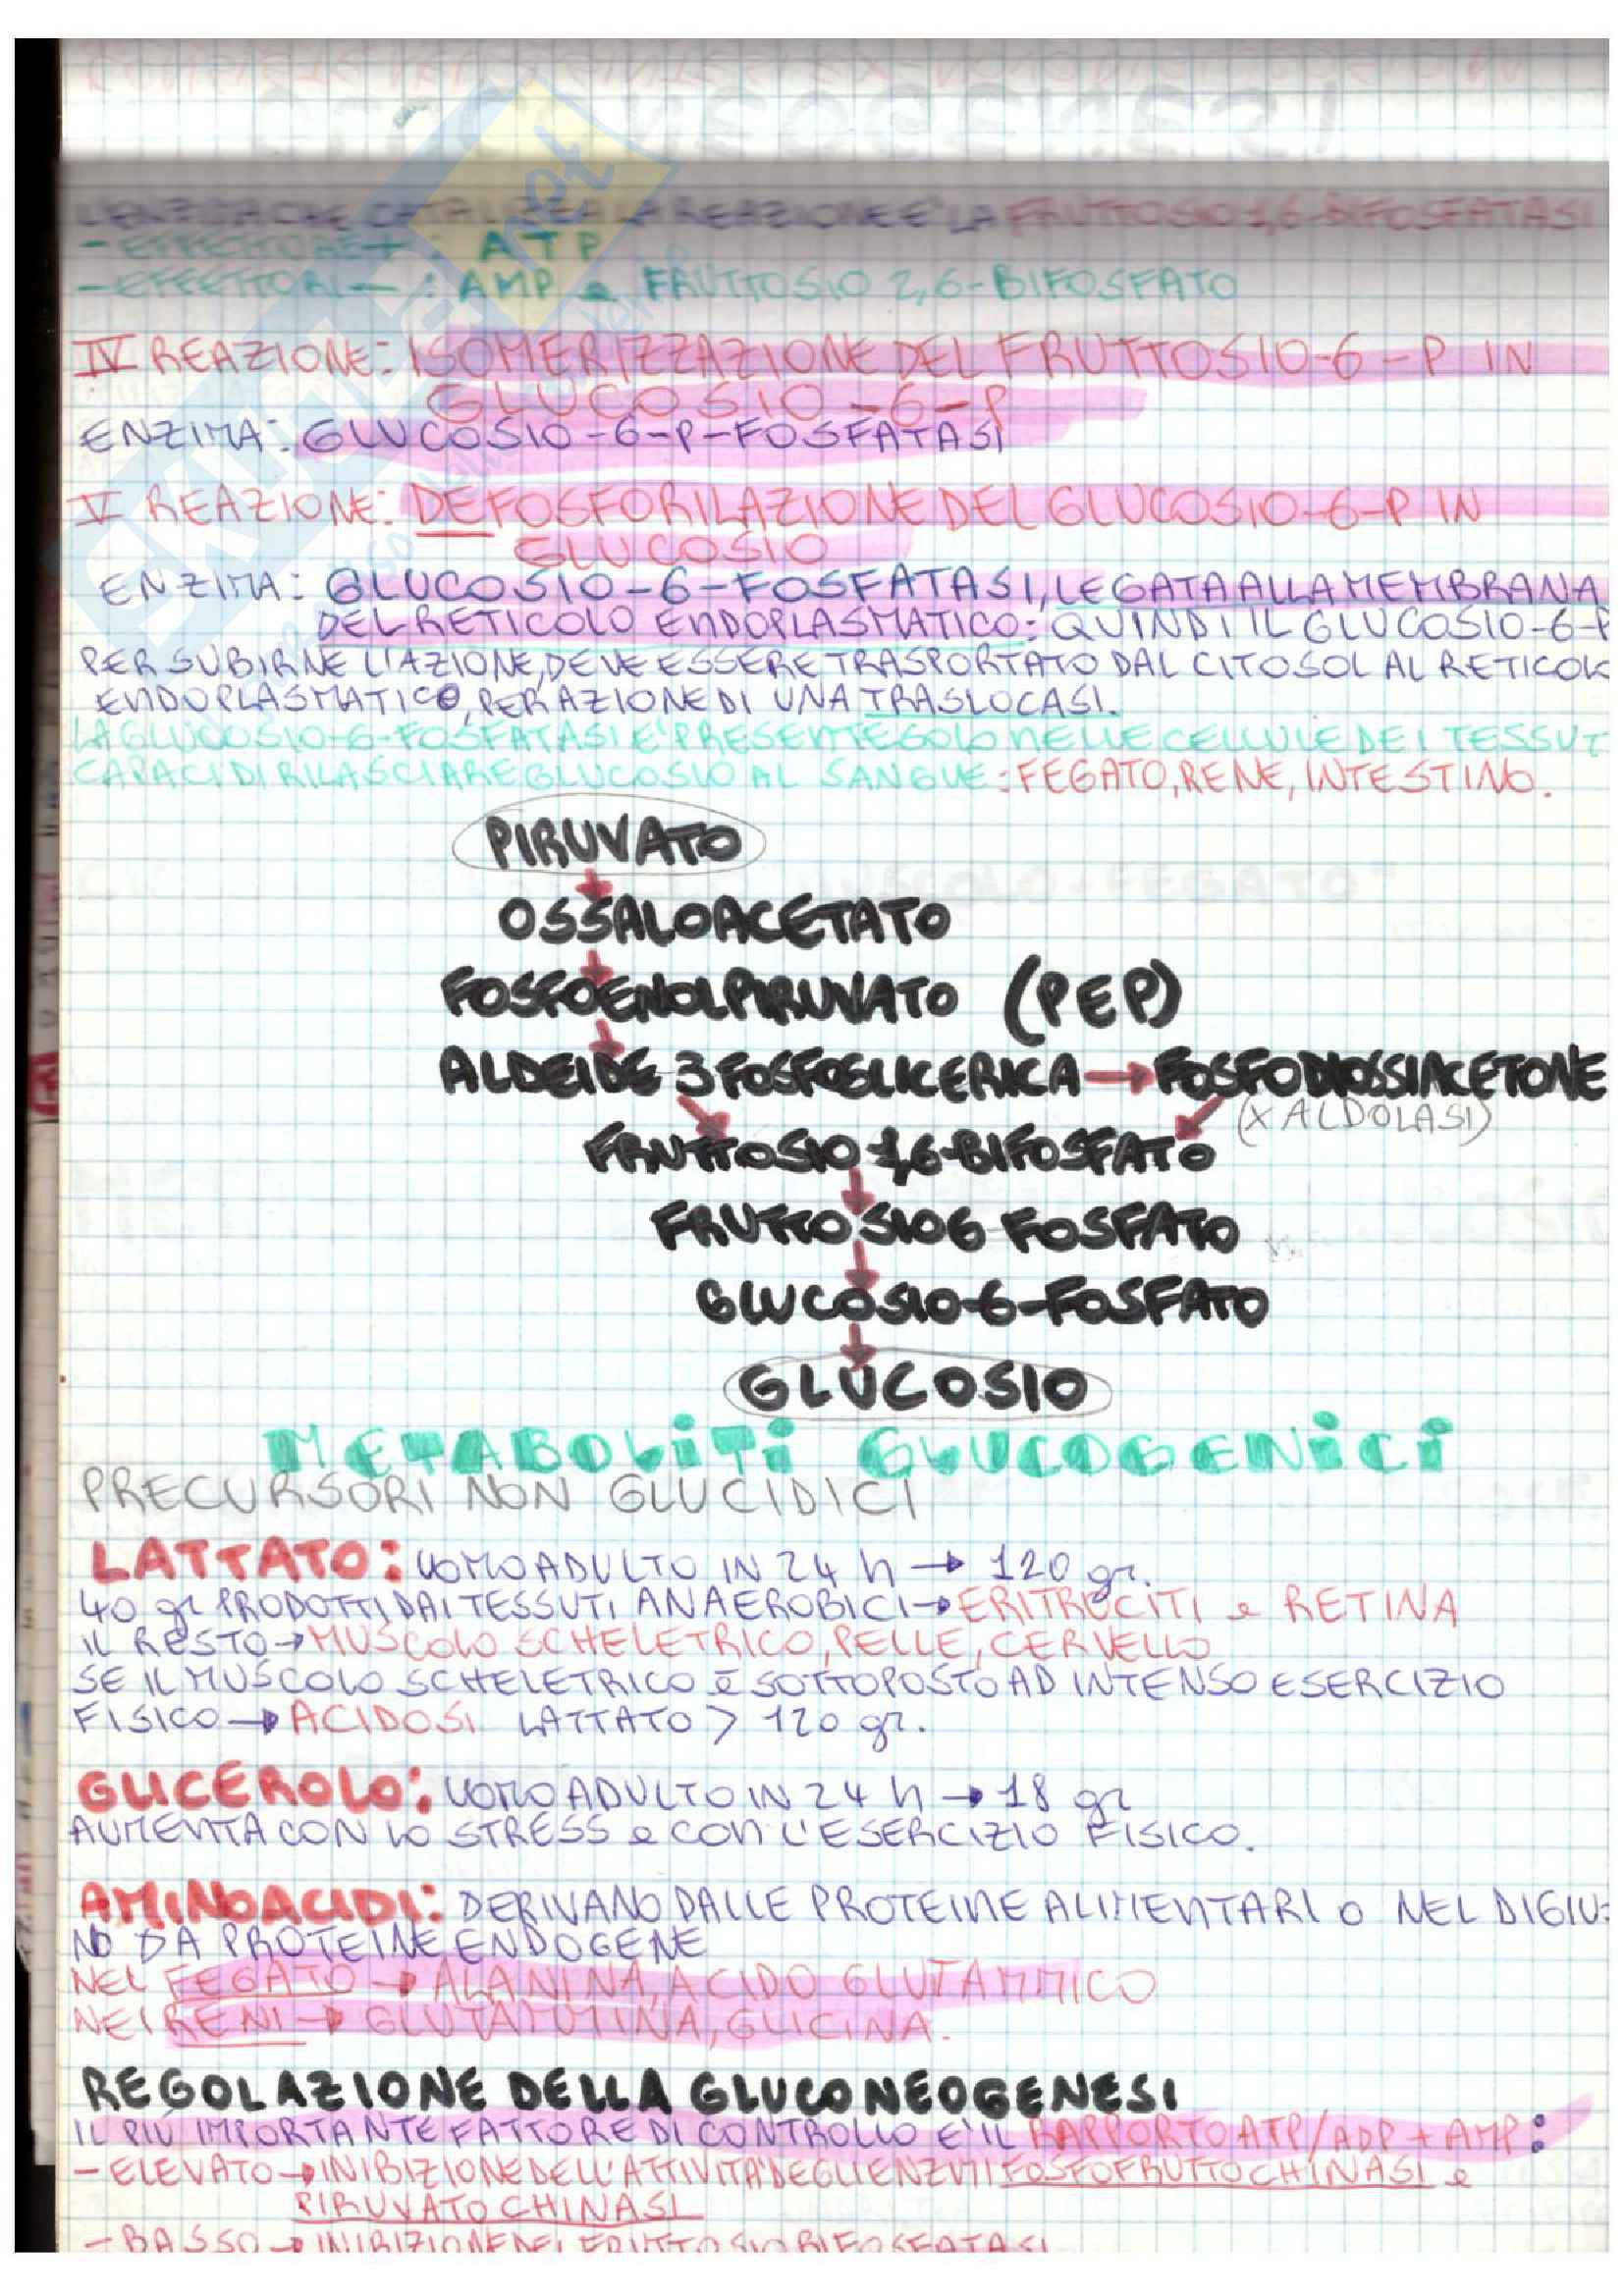 L'ENZIMA CHE CATALIZZA LA REAZIONE E' LA FRUTTOSIO 1,6-BIFOSFATASI
- EFFETTORE + : ATP
- EFFETTORI - : AMP e FRUTTOSIO 2,6-BIFOSFATO
IV REAZIONE: ISOMERIZZAZIONE DEL FRUTTOSIO-6-P IN
GLUCOSIO-6-P
ENZIMA: GLUCOSIO-6-P-FOSFATASI
V REAZIONE: DEFOSFORILAZIONE DEL GLUCOSIO-6-P IN
GLUCOSIO
ENZIMA: GLUCOSIO-6-FOSFATASI, LEGATA ALLA MEMBRANA
DEL RETICOLO ENDOPLASMATICO: QUINDI IL GLUCOSIO-6-P
PER SUBIRNE L'AZIONE, DEVE ESSERE TRASPORTATO DAL CITOSOL AL RETICOL
ENDOPLASMATICO, PER AZIONE DI UNA TRASLOCASI.
LA GLUCOSIO-6-FOSFATASI E' PRESENTE SOLO NELLE CELLULE DEI TESSUT
CAPACI DI RILASCIARE GLUCOSIO AL SANGUE: FEGATO, RENE, INTESTINO.
PIRUVATO
OSSALOACETATO
FOSFOENOLPIRUVATO (PEP)
ALDEIDE 3 FOSFOGLICERICA → FOSFODIOSSIACETONE
(X ALDOLASI)
FRUTTOSIO 1,6-BIFOSFATO
FRUTTOSIO 6 FOSFATO
GLUCOSIO-6-FOSFATO
GLUCOSIO
METABOLITI GLUCOGENICI
PRECURSORI NON GLUCIDICI
LATTATO: UOMO ADULTO IN 24 h → 120 gr.
40 gr PRODOTTI DAI TESSUTI ANAEROBICI → ERITROCITI e RETINA
IL RESTO → MUSCOLO SCHELETRICO, PELLE, CERVELLO
SE IL MUSCOLO SCHELETRICO È SOTTOPOSTO AD INTENSO ESERCIZIO
FISICO → ACIDOSI LATTATO > 120 gr.
GLICEROLO: UOMO ADULTO IN 24 h → 18 gr
AUMENTA CON LO STRESS e CON L'ESERCIZIO FISICO.
AMINOACIDI: DERIVANO DALLE PROTEINE ALIMENTARI O NEL DIGIU-
NO DA PROTEINE ENDOGENE
NEL FEGATO → ALANINA, ACIDO GLUTAMMICO
NEI RENI → GLUTAMMINA, GLICINA.
REGOLAZIONE DELLA GLUCONEOGENESI
IL PIÚ IMPORTANTE FATTORE DI CONTROLLO E' IL RAPPORTO ATP/ADP + AMP:
- ELEVATO → INIBIZIONE DELL'ATTIVITA' DEGLI ENZIMI FOSFOFRUTTOCHINASI e
PIRUVATO CHINASI
- BASSO → INIBIZIONE DEL FRUTTOSIO BIFOSFATASI